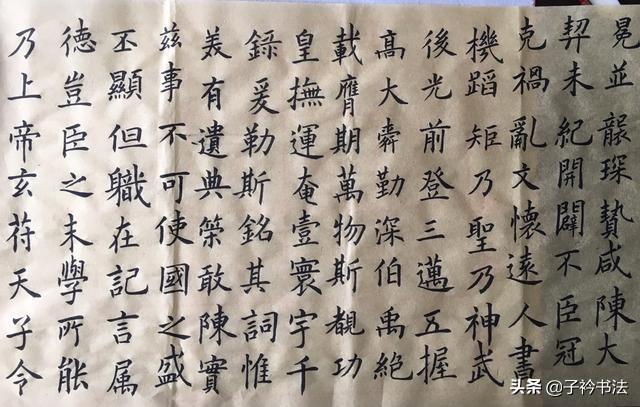 乃上帝玄苻天子令
德豈臣之末學所能
丕顯但職在記言属
茲事不可使國之盛
美有遺典筞敢陳實
錄爰勒斯銘其詞惟
皇撫運奄壹寰宇千
載膺期萬物斯覩功
高大舜勤深伯禹絕
後光前登三邁五握
機蹈矩乃聖乃神武
克禍亂文懷遠人書
契未紀開闢不臣冠
冕並襲琛贄咸陳大
头条 @子衿书法